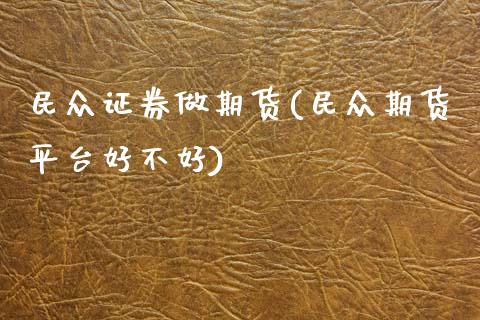 民众证券做期货(民众期货
平台好不好)